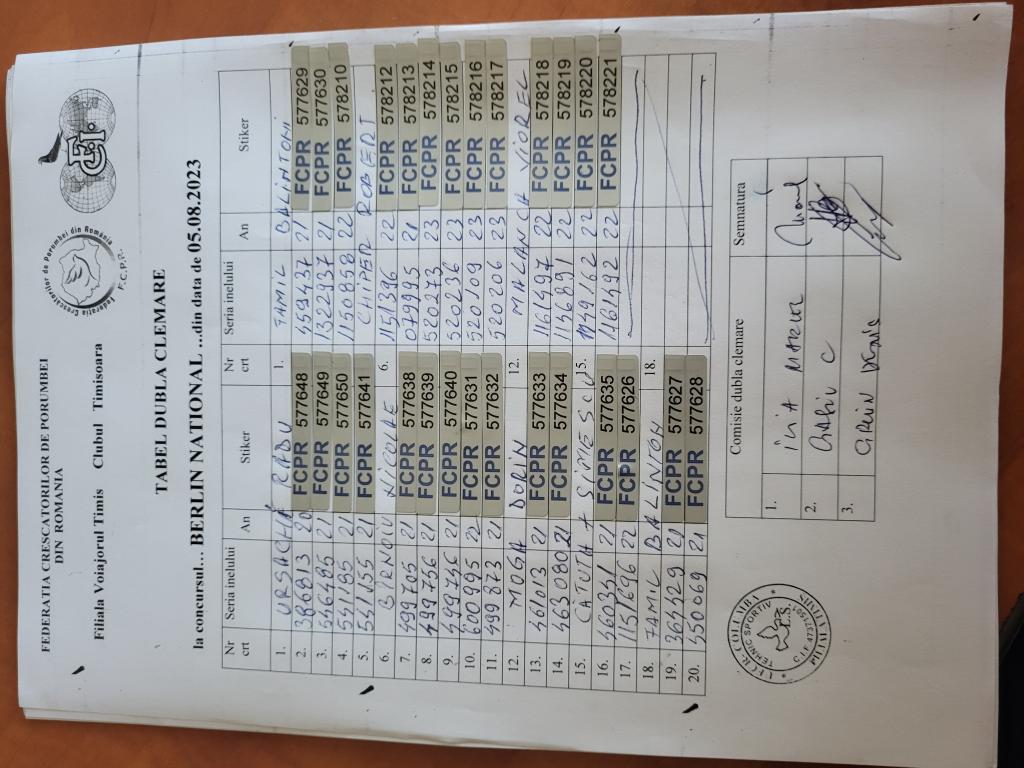 FEDERATIA CRESCATORILOR DE PORUMBEI
DIN ROMANIA
Filiala Voiajorul Timis Clubul Timisoara
Federatia Crescatorilor de Porumbei din România
F.C.P.R.
F.C.I.
TABEL DUBLA CLEMARE
la concursul... BERLIN NATIONAL ...din data de 05.08.2023
Nr crt Seria inelului An Stiker Nr crt Seria inelului An Stiker
1. URSACHE RADU 1. TAMIL BALINTONI
2. 386813 20 FCPR 577648 459437 21 FCPR 577629
3. 546485 21 FCPR 577649 1322937 21 FCPR 577630
4. 551185 21 FCPR 577650 1150858 22 FCPR 578210
5. 551155 21 FCPR 577641 CHIPER ROBERT
6. NICOLAE 6. 1151396 22 FCPR 578212
7. 499705 21 FCPR 577638 079995 21 FCPR 578213
8. 499736 21 FCPR 577639 520273 23 FCPR 578214
9. 499746 21 FCPR 577640 520236 23 FCPR 578215
10. 600995 22 FCPR 577631 520109 23 FCPR 578216
11. 499873 21 FCPR 577632 520206 23 FCPR 578217
12. MOGA DORIN 12. VIOREL
13. 461013 21 FCPR 577633 1161497 22 FCPR 578218
14. 463080 21 FCPR 577634 1146891 22 FCPR 578219
15. + SIMIESCU 15. 1149162 22 FCPR 578220
16. 460351 21 FCPR 577635 1161492 22 FCPR 578221
17. 1151696 22 FCPR 577626
18. TAMIL BALINTON 18.
19. 364529 21 FCPR 577627
20. 450069 21 FCPR 577628
Comisie dubla clemare Semnatura
1.
2.
3. DENIS
COLUMBA
TEHNIC SPORTIV
FILIALA TIMIS